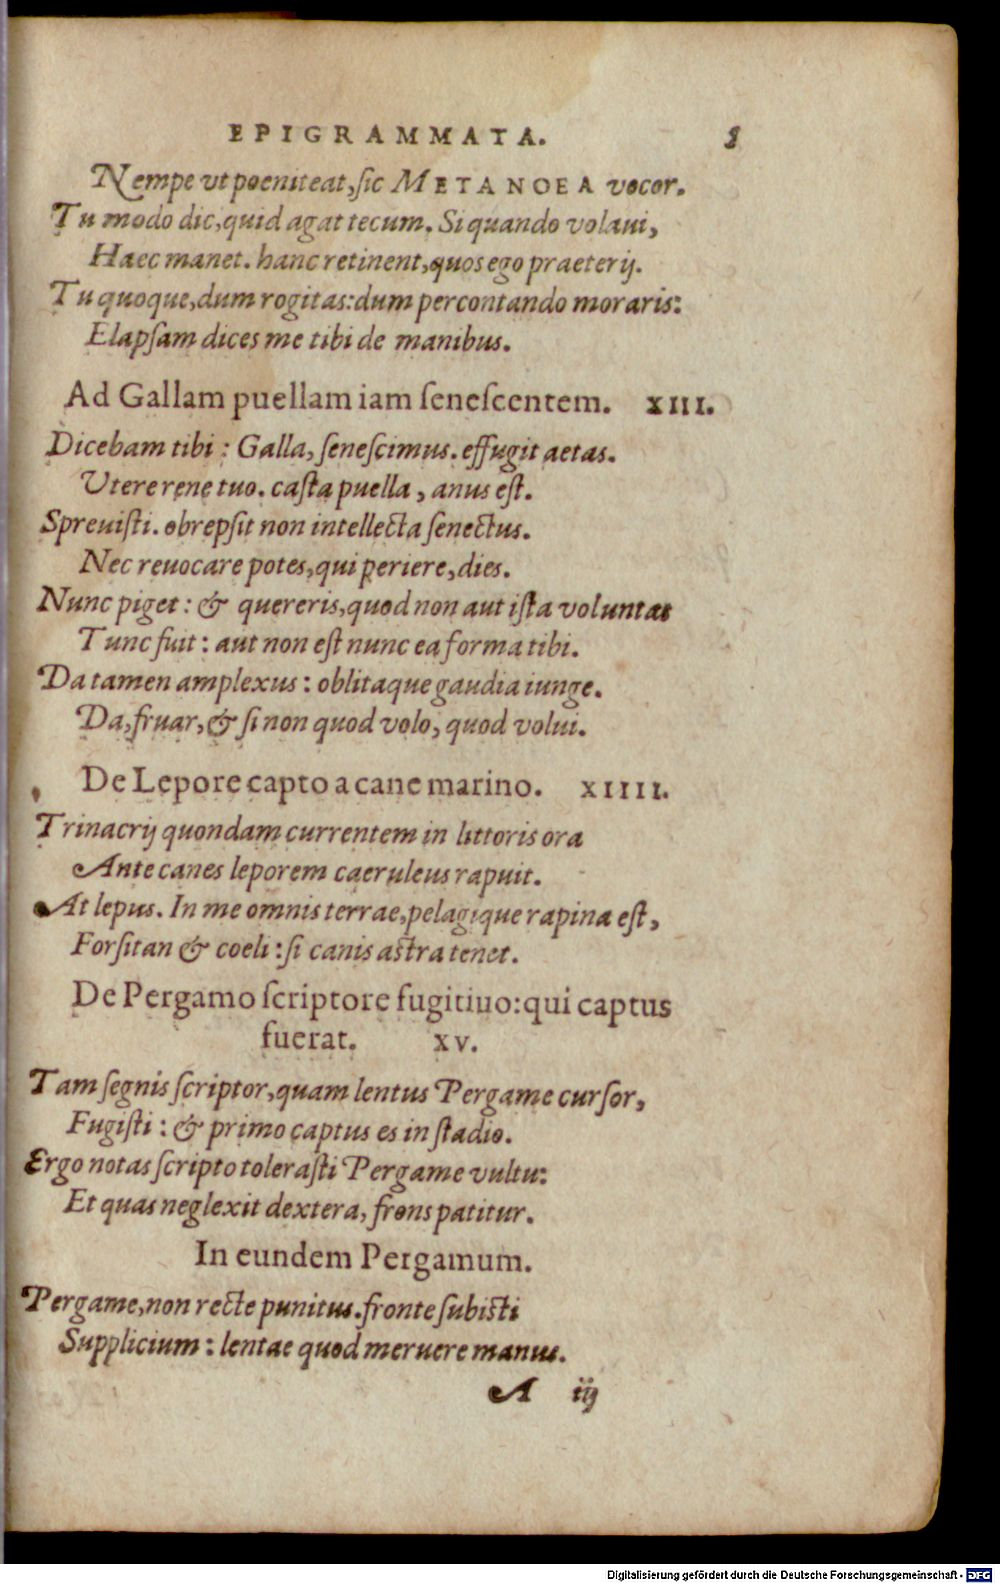 EPIGRAMMATA. 5
Nempe vt poeniteat, sic METANOEA vocor.
Tu modo dic, quid agat tecum. Si quando volaui,
Haec manet. hanc retinent, quos ego praeterij.
Tu quoque, dum rogitas: dum percontando moraris:
Elapſam dices me tibi de manibus.
Ad Gallam puellam iam ſeneſcentem. XIII.
Dicebam tibi : Galla, ſeneſcimus. effugit aetas.
Vtere rene tuo. caſta puella, anus eſt.
Spreuiſti. obrepſit non intellecta ſenectus.
Nec reuocare potes, qui periere, dies.
Nunc piget : & quereris, quod non aut iſta voluntas
Tunc fuit : aut non eſt nunc ea forma tibi.
Da tamen amplexus : oblitaque gaudia iunge.
Da, fruar, & ſi non quod volo, quod volui.
De Lepore capto a cane marino. XIIII.
Trinacrij quondam currentem in littoris ora
Ante canes leporem caeruleus rapuit.
At lepus. In me omnis terrae, pelagique rapina eſt,
Forſitan & coeli : ſi canis aſtra tenet.
De Pergamo ſcriptore fugitiuo: qui captus
fuerat. XV.
Tam ſegnis ſcriptor, quam lentus Pergame curſor,
Fugiſti : & primo captus es in ſtadio.
Ergo notas ſcripto toleraſti Pergame vultu:
Et quas neglexit dextera, frons patitur.
In eundem Pergamum.
Pergame, non recte punitus. fronte ſubiſti
Supplicium : lentae quod meruere manus.
A iij
Digitalisierung gefördert durch die Deutsche Forschungsgemeinschaft - DFG